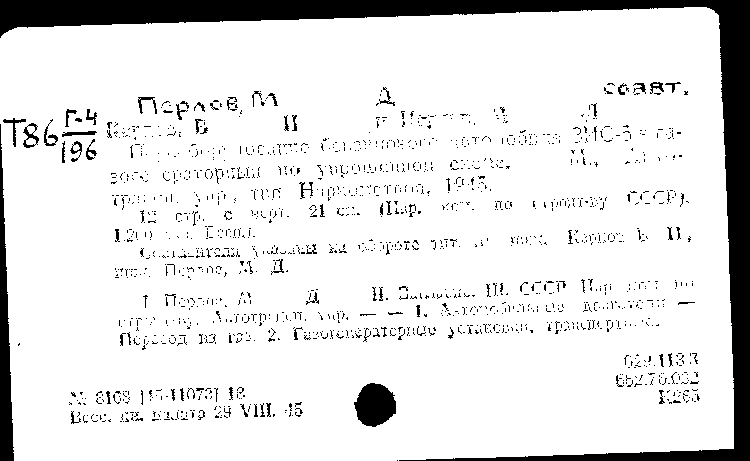 Перлов, М Д соавт.
Т86 Г-4/196
Карпов, В П и Перлов, М Д
бензинового автомобиля ЗИС-5 в га-
зогенераторный по упрощенной схеме. М.,
упр., тип Наркомстроя, 1945.
12 стр. с черт. 21 см. (Нар. ком. по строит-ву СССР).
1.200 экз. Беспл.
Составители указаны на обороте тит. л. инж. Карпов В. П.,
инж. Перлов, М. Д.
I. Перлов, М Д II. Заглавие. III. СССР Нар. ком. по
упр. — — 1. Автомобильные двигатели —
Перевод на газ. 2. Газогенераторные установки, транспортные.
629.113
662.76.032
К265
№ 8108 [45-11073] 18
Всес. кн. палата 29 VIII. 45